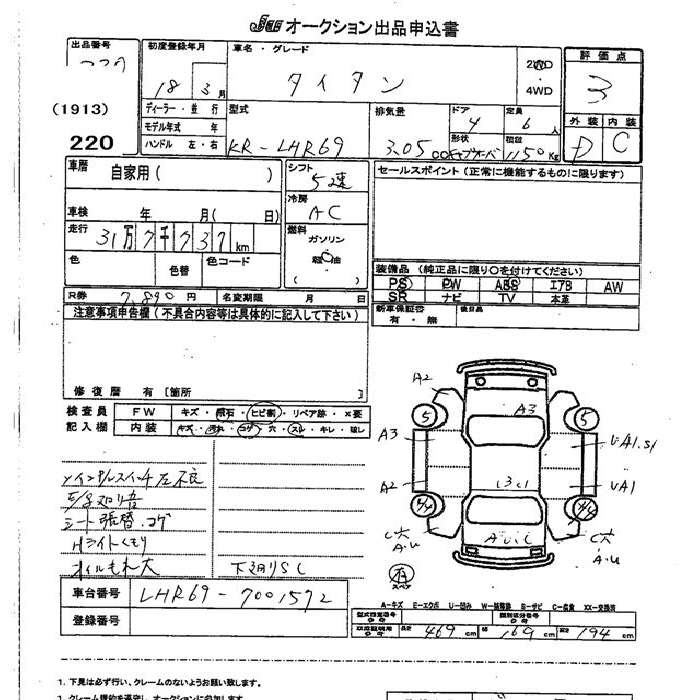 JU オークション出品申込書
出品番号
(1913)
220
初度登録年月
18 3月
車名・グレード
タイタン
2WD
・
4WD
評価点
3
外装 内装
D C
ディーラー・並行
モデル年式 年
ハンドル 左・右
型式
KR-LHR69
排気量
3.05
ドア
4
定員
6人
形状
積載
1150kg
車歴
自家用( )
シフト
5速
車検 年 月( 日)
冷房
AC
走行 31万7千737km
燃料
ガソリン
軽油
( )
色
色替
色コード
R券 7,890円
名変期限 月 日
セールスポイント(正常に機能するものに限ります)
装備品 (純正品に限り○を付けてください)
PS PW ABS エアB AW
SR ナビ TV 本革
新車保証書
有・無
後日品
注意事項申告欄(不具合内容等は具体的に記入して下さい)
修復歴 有[箇所
検査員
記入欄
FW キズ・飛石・ヒビ割・リペア跡・×要
内装 キズ・汚れ・コゲ・穴・スレ・キレ・破レ
シート張替.コゲ
Hライトくもり
オイルもれ大
下廻りSC
A2
A3
5
5
A3
UA1.S1
A2
UA1
C穴
A.U
C穴
A.U
有
スペア
A―キズ E―エクボ U―凹み W―補修跡 S―サビ C―腐食 XX―交換済
車台番号 LHR69-7001572
登録番号
型式指定番号
類別区分番号
長さ 469cm 幅 169cm 高さ 194cm
1. 下見は必ず行い、クレームのないようお願い致します。